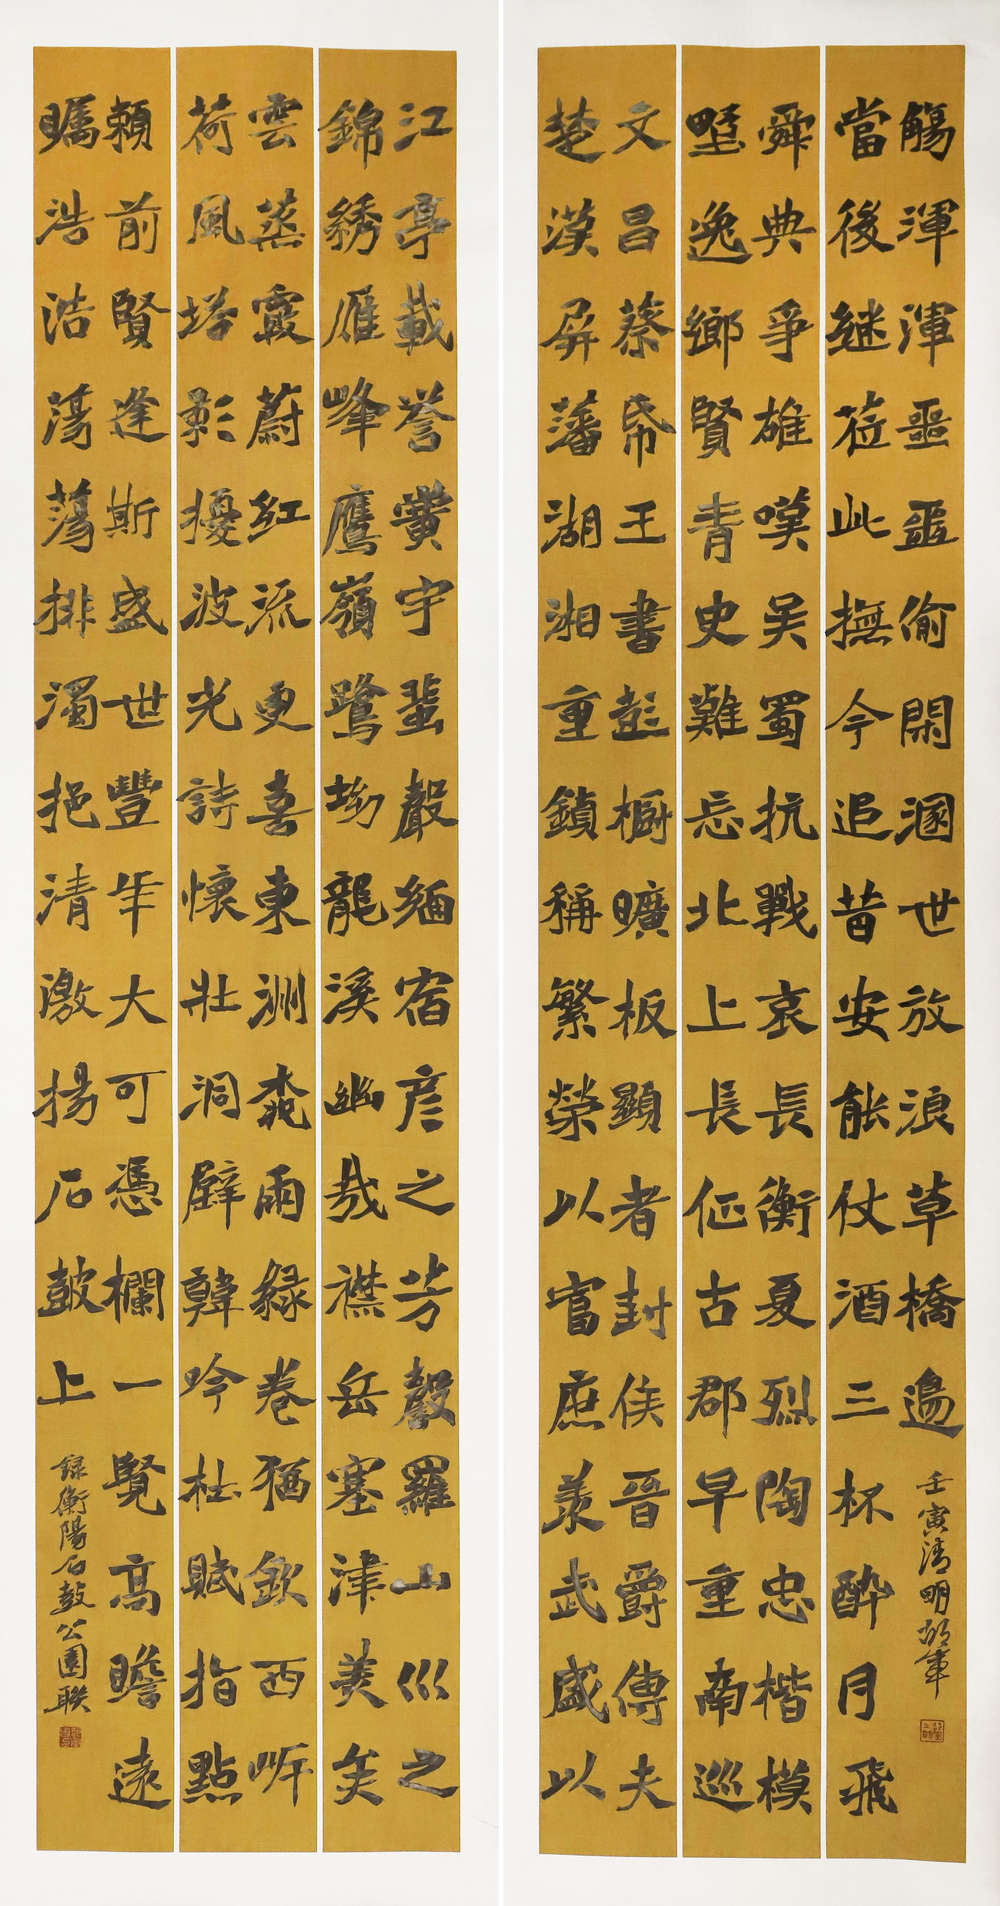 江亭載譽黌宇蜚聲緬宿彥之芳馨羅山巛之
錦綉雁峰鷹嶺鷺坳龍溪幽哉襟岳塞津美矣
雲蒸霞蔚紅流更喜東洲桃雨緑卷猶欽西岍
荷風塔影擾波光詩懷壯洞壁韓吟杜賦指點
賴前賢逢斯盛世豐年大可憑欄一覽高瞻遠
矚浩浩蕩蕩排濁挹清激揚石鼓上
録衡陽石鼓公園聯
楚漢屏藩湖湘重鎮稱繁榮以富庶羨武盛以
文昌蔡帋王書彭櫥曠板顯者封侯晉爵傳夫
墅逸鄉賢青史難忘北上長征古郡早重南巡
舜典爭雄嘆吴蜀抗戰哀長衡夏烈陶忠楷模
當後継蒞此撫今追昔安能仗酒三杯醉月飛
觴渾渾噩噩偷閑溷世放浪草橋邊
壬寅清明胡軍